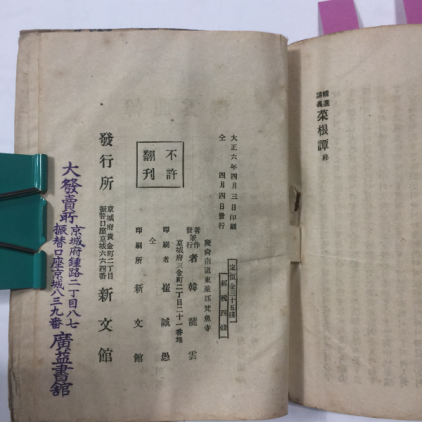 精選
講義
菜根譚 終
大正六年四月三日印刷
仝 四月四日發行
慶尙南道東萊郡梵魚寺
著作
兼發行者 韓龍雲
京城府黃金町二丁目二十一番地
印刷者 崔誠愚
仝
印刷所 新文館
不許
翻刊
京城府黃金町二丁目
振替口座京城六六四番
發行所 新文館
大發賣所 京城府鍾路二丁目八七
振替口座京城八三九番 廣益書舘